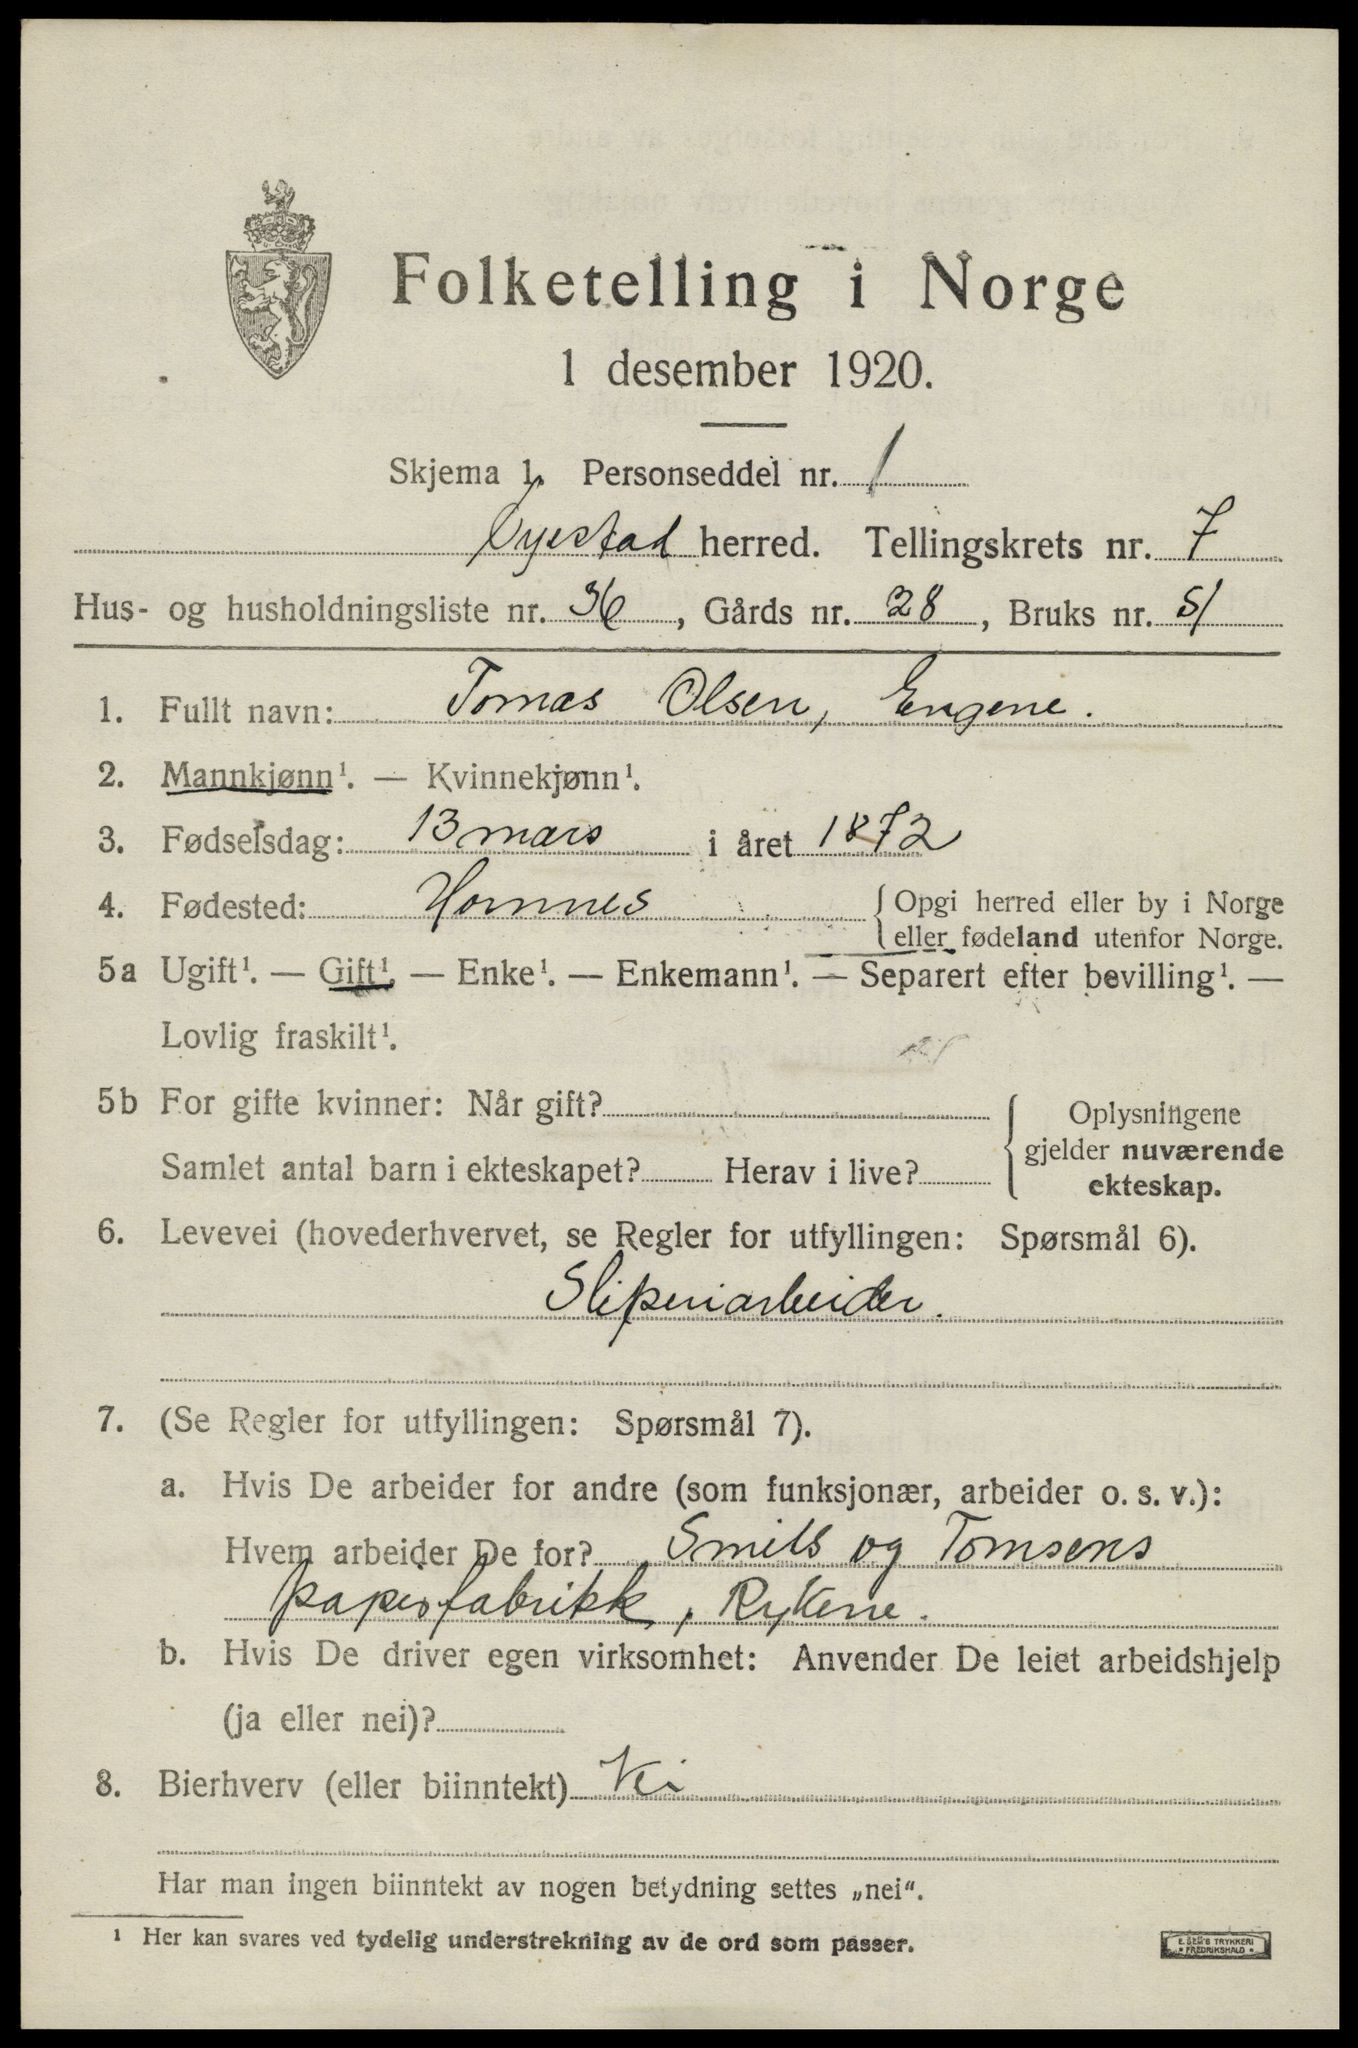 Folketelling i Norge
1 desember 1920.
Skjema 1. Personseddel nr. 1
Øyestad herred. Tellingskrets nr. 7
Hus- og husholdningsliste nr. 36, Gårds nr. 28, Bruks nr. 51
1. Fullt navn: Tomas Olsen, Engene.
2. Mannkjønn¹. — Kvinnekjønn¹.
3. Fødselsdag: 13 mars i året 1872
4. Fødested: Hornnes { Opgi herred eller by i Norge
eller fødeland utenfor Norge.
5a Ugift¹. — Gift¹. — Enke¹. — Enkemann¹. — Separert efter bevilling¹. —
Lovlig fraskilt¹.
5b For gifte kvinner: Når gift?
Samlet antal barn i ekteskapet? Herav i live?
Oplysningene
gjelder nuværende
ekteskap.
6. Levevei (hovederhvervet, se Regler for utfyllingen: Spørsmål 6).
Sliperiarbeider.
7. (Se Regler for utfyllingen: Spørsmål 7).
a. Hvis De arbeider for andre (som funksjonær, arbeider o. s. v.):
Hvem arbeider De for? Smits og Tomsens
papirfabrikk, Rykene.
b. Hvis De driver egen virksomhet: Anvender De leiet arbeidshjelp
(ja eller nei)?
8. Bierhverv (eller biinntekt) Nei
Har man ingen biinntekt av nogen betydning settes „nei“.
¹ Her kan svares ved tydelig understrekning av de ord som passer.
E. SEM'S TRYKKERI
FREDRIKSHALD